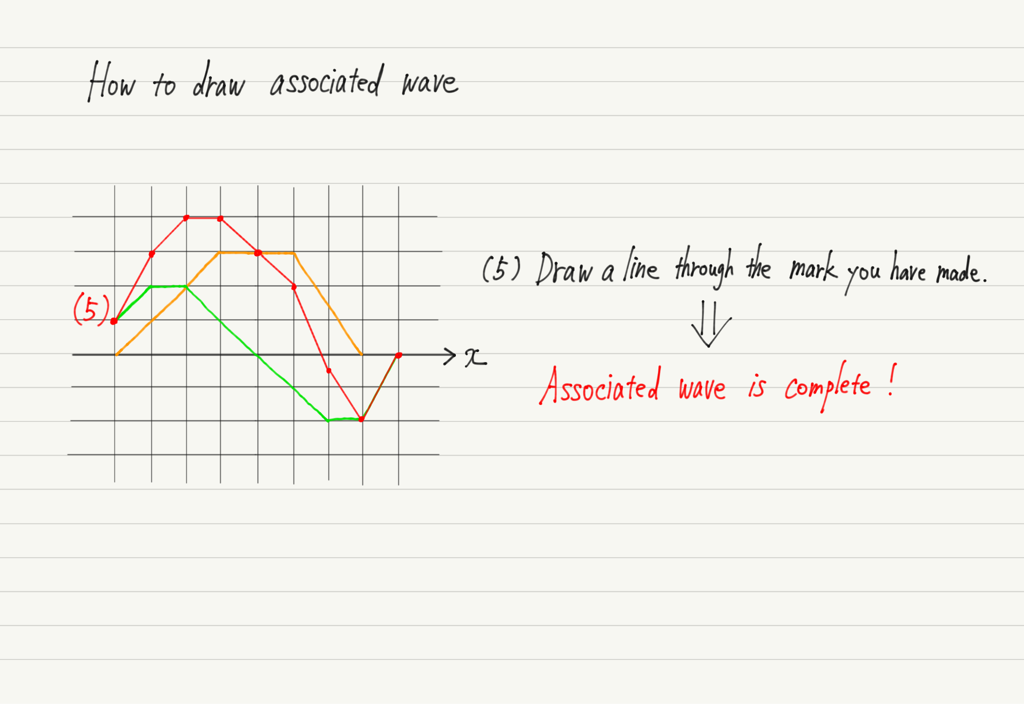 How to draw associated wave
(5)
x
(5) Draw a line through the mark you have made.
Associated wave is complete!